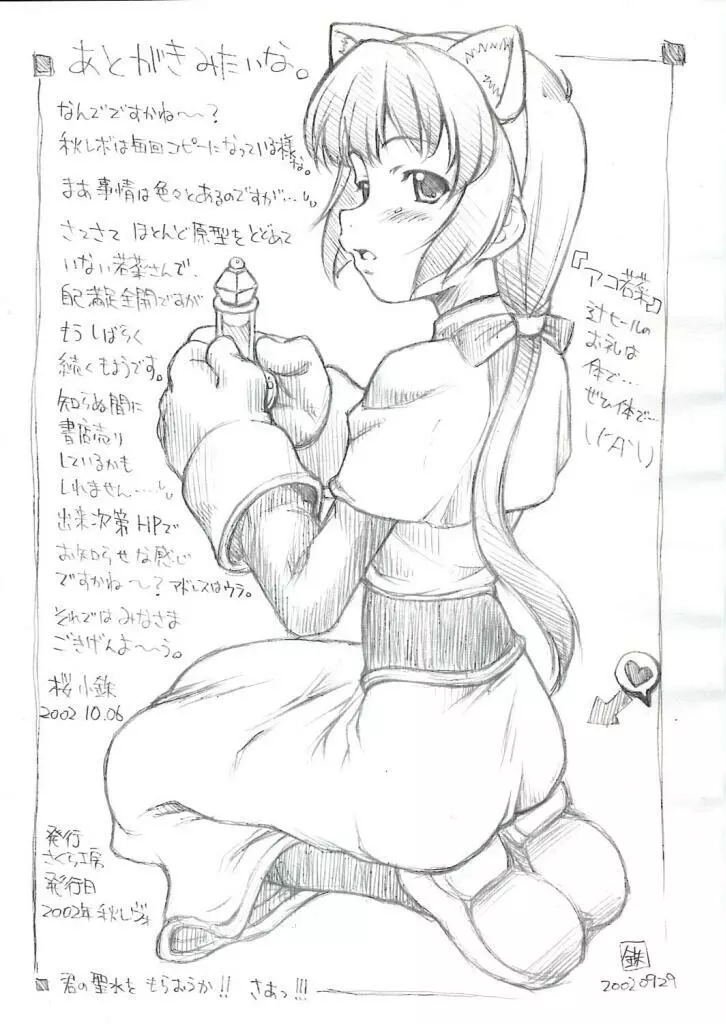 あとがきみたいな。
なんでですかね〜〜?
秋レボは毎回コピーになっている様な。
まあ事情は色々とあるのですが…
さてさて ほとんど原型をとどめて
いない若菜さんで、
自己満足全開ですが
もうしばらく
続くもようです。
知らぬ間に
書店売り
しているかも
しれません……
出来次第HPで
お知らせな感じ
ですかね〜〜?アドレスはウラ。
それではみなさま
ごきげんよ〜〜う。
桜小鉄
2002 10.06
発行
さくら工房
発行日
2002年 秋レヴォ
『アコ若菜』
辻ヒールの
お礼は
体で…
ぜひ体で…
君の聖水を もらおうか!! さあっ!!!
2002 09 29